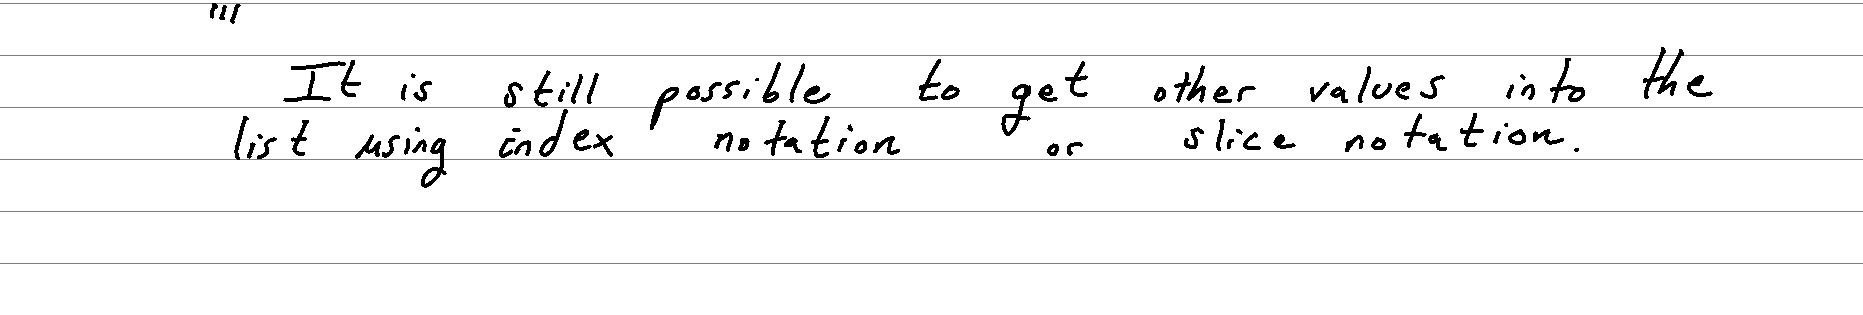 '''
It is still possible to get other values into the
list using index notation or slice notation.